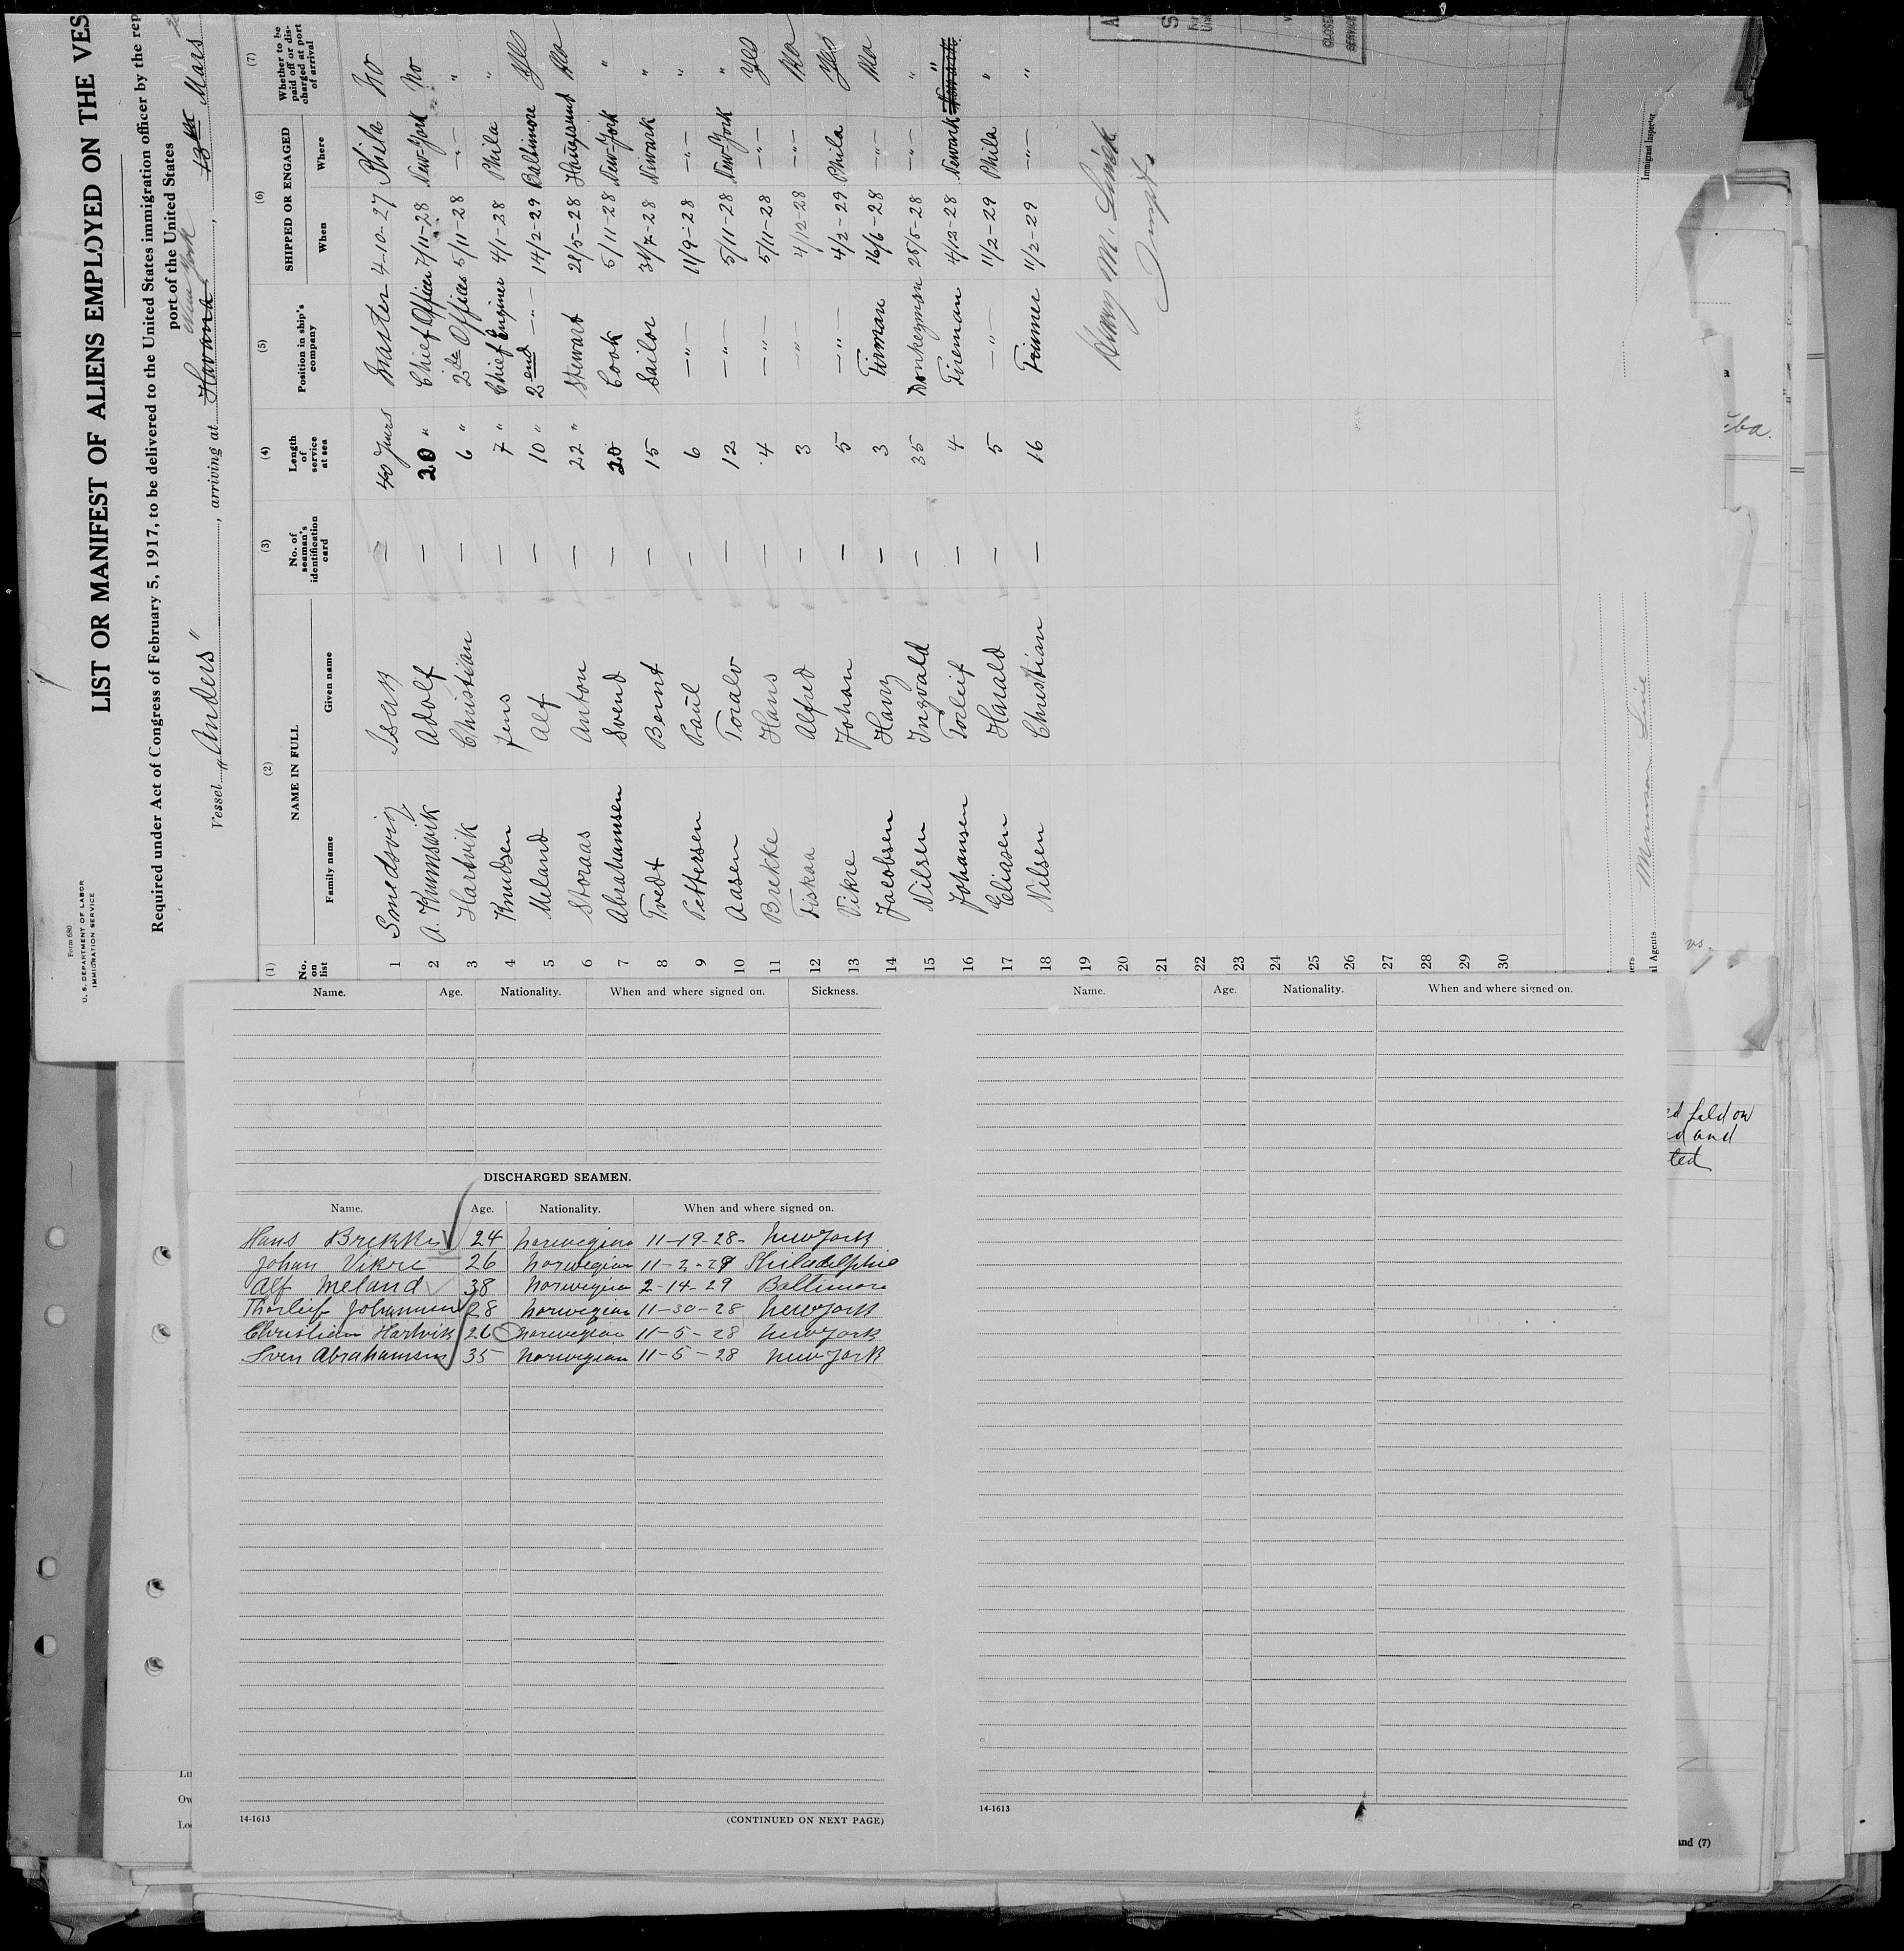 Form 680
U. S. DEPARTMENT OF LABOR
IMMIGRATION SERVICE
LIST OR MANIFEST OF ALIENS EMPLOYED ON THE VES
Required under Act of Congress of February 5, 1917, to be delivered to the United States immigration officer by the rep
port of the United States
New York
Vessel "Anders", arriving at Havana, 13th Mars
(1) (2) (3) (4) (5) (6) (7)
No. on list NAME IN FULL No. of seaman's identification card Length of service at sea Position in ship's company SHIPPED OR ENGAGED Whether to be paid off or discharged at port of arrival
Family name Given name When Where
1 Smedsvig Isak — 40 years Master 4-10-27 Phila No
2 A. Kumnsvik Adolf — 20 " Chief Officer 7/11-28 New-York No
3 Hartvik Christian — 6 " 2de Officer 5/11-28 —"— "
4 Knudsen Jens — 7 " Chief Enginer 4/1-28 Phila "
5 Meland Alf — 10 " 2end —"— 14/2-29 Baltimore Yes
6 Storaas Anton — 22 " Stewart 28/5-28 Haugesund No
7 Abrahamsen Svend — 20 Cook 5/11-28 New-York "
8 Tvedt Bernt — 15 Sailor 31/7-28 Newark "
9 Pettersen Paul — 6 —"— 11/9-28 —"— "
10 Aasen Toralv — 12 —"— 5/11-28 New-York "
11 Brekke Hans — 4 —"— 5/11-28 —"— Yes
12 Fiskaa Alfred — 3 —"— 4/12-28 —"— No
13 Vikre Johan — 5 —"— 4/2-29 Phila Yes
14 Jacobsen Harry — 3 Firman 16/6-28 —"— No
15 Nilsen Ingvald — 35 Donkeyman 28/5-28 —"— "
16 Johansen Torleif — 4 Fireman 4/12-28 Newark "
17 Eliasen Harald — 5 —"— 11/2-29 Phila "
18 Nilsen Christian — 16 Trimmer 11/2-29 —"— "
19
20
21
22
23
24
25
26
27
28
29
30
Immigrant Inspector
Munson Line
l Agents
CLOSE
SERVICE
Name. Age. Nationality. When and where signed on. Sickness.
DISCHARGED SEAMEN.
Name. Age. Nationality. When and where signed on.
Hans Brekke 24 Norwegian 11-19-28- New York
Johan Vikre 26 Norwegian 11-2-29 Philadelphia
Alf Meland 38 Norwegian 2-14-29 Baltimore
Thorleif Johannsen 28 Norwegian 11-30-28 New York
Christian Hartvik 26 Norwegian 11-5-28 New York
Sven Abrahamsen 35 Norwegian 11-5-28 New York
14-1613
(CONTINUED ON NEXT PAGE)
Name. Age. Nationality. When and where signed on.
14-1613
ba.
ed held on
d and
ted
and (7)